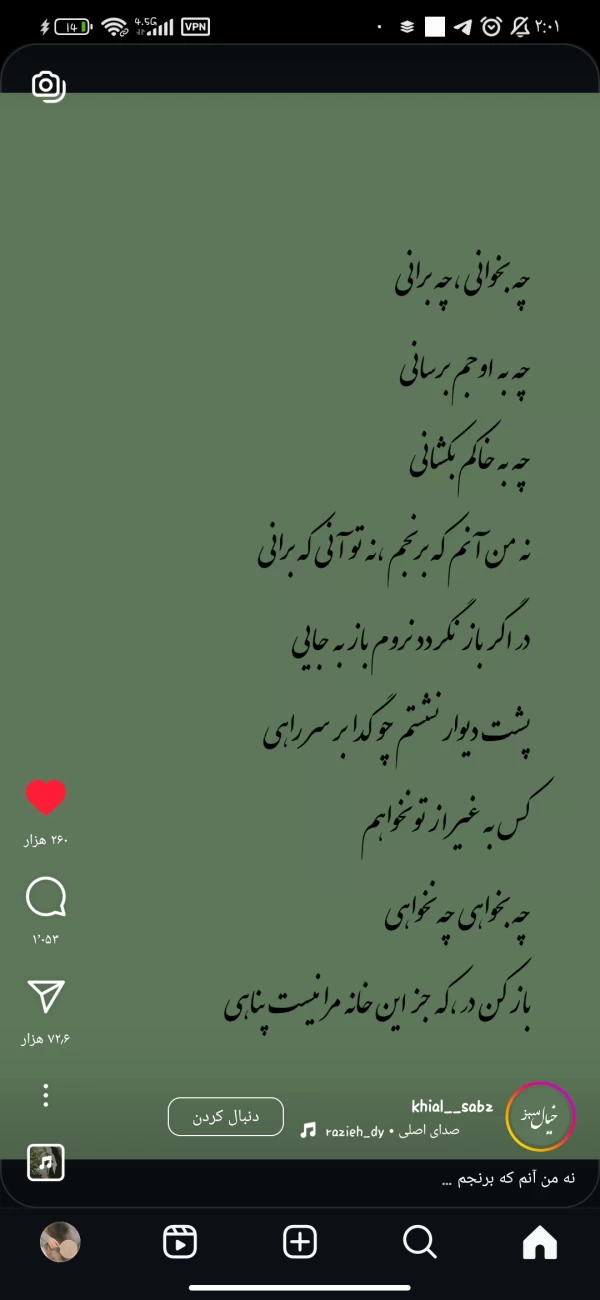 14 4.5G VPN ۲:۰۱
چه بخوانی ، چه برانی
چه به اوجم برسانی
چه به خاکم بکشانی
نه من آنم که برنجم ، نه تو آنی که برانی
در اگر باز نگردد نروم باز به جایی
پشت دیوار نشستم چو گدا بر سر راهی
کس به غیر از تو نخواهم
چه بخواهی چه نخواهی
باز کن در ، که جز این خانه مرا نیست پناهی
۲۶۰ هزار
۱٬۰۵۳
۷۲٫۶ هزار
khial__sabz
خیال سبز
دنبال کردن
صدای اصلی • razieh_dy
نه من آنم که برنجم ...